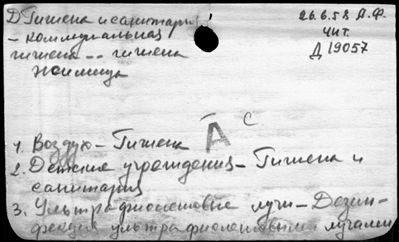 Д Гигиена и санитария
26.6.58 А.Ф.
– коммунальная
чит.
гигиена -- гигиена
Д 19057
жилища
А С
1. Воздух – Гигиена
2. Детские учреждения – Гигиена и
санитария
3. Ультрафиолетовые лучи – Дезин-
фекция ультрафиолетовыми лучами